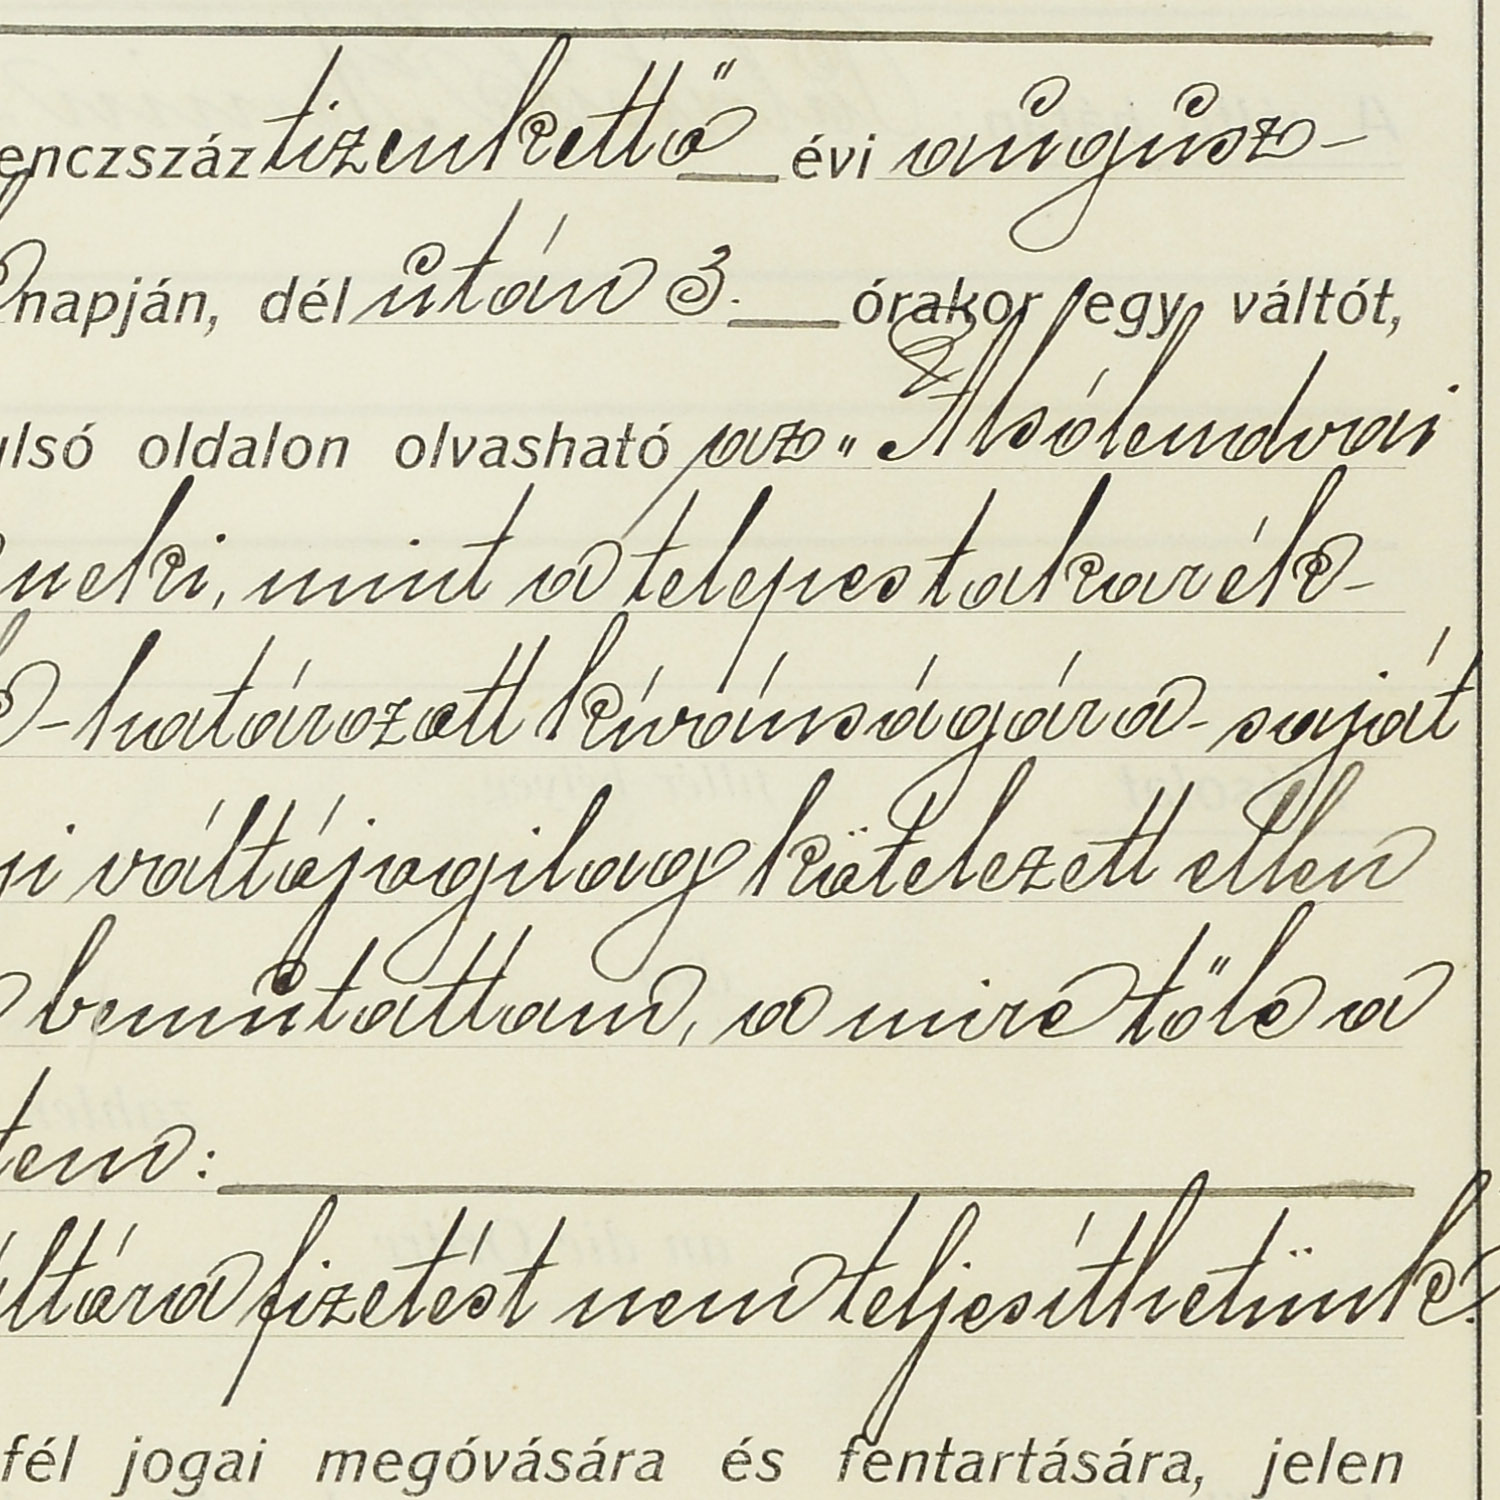 enczszáz tizenkettő évi augusz-
napján, dél után 3. órakor egy váltót,
ulsó oldalon olvasható az „Alsólendvai
neki, mint a telepes takarék-
- határozott kívánságára - saját
váltójogilag kötelezett ellen
bemutattam, a mire tőle a
tem:
áltóra fizetést nem teljesíthetünk.
fél jogai megóvására és fentartására, jelen